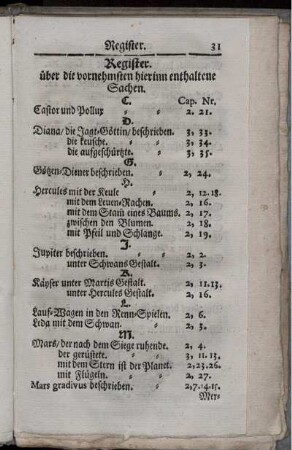 Register. 31
Register.
über die vornehmsten hierinn enthaltene
Sachen.
C. Cap. Nr.
Castor und Pollux 2. 21.
D.
Diana/die Jagt-Göttin/beschrieben. 3, 33.
die keusche. 3, 34.
die aufgeschürtzte. 3, 35.
G.
Götzen-Diener beschrieben. 2, 24.
H.
Hercules mit der Keule 2, 12.18.
mit dem Leuen-Rachen. 2, 16.
mit dem Stam̃ eines Baums. 2, 17.
zwischen den Blumen. 2, 18.
mit Pfeil und Schlange. 2, 19.
J.
Jupiter beschrieben. 2. 2.
unter Schwans Gestalt. 2, 3.
K.
Käyser unter Martis Gestalt. 2, 11.13.
unter Hercules Gestalt. 2, 16.
L.
Lauf-Wagen in den Renn-Spielen. 2, 6.
Leda mit dem Schwan. 2, 3.
M.
Mars/der nach dem Siege ruhende. 2, 4.
der gerüstete. 3, 11.13.
mit dem Stern ist der Planet. 2,23.26.
mit Flügeln. 2, 27.
Mars gradivus beschrieben. 2,7.4.15.
Mer-